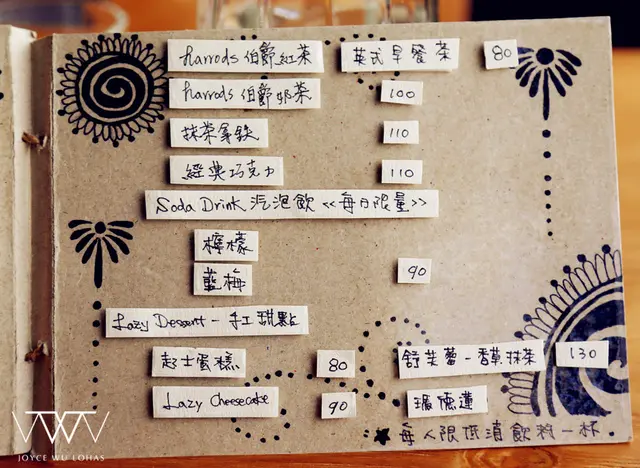 harrods 伯爵紅茶 英式早餐茶 80
harrods 伯爵奶茶 100
抹茶拿鉄 110
經典巧克力 110
Soda Drink 汽泡飲 <<每日限量>>
檸檬
藍梅 90
Lazy Dessert - 手工甜點
起士蛋糕 80 舒芙蕾-香草抹茶 130
Lazy Cheesecake 90 瑪德蓮
★每人限低消飲料一杯.
JOYCE WU LOHAS